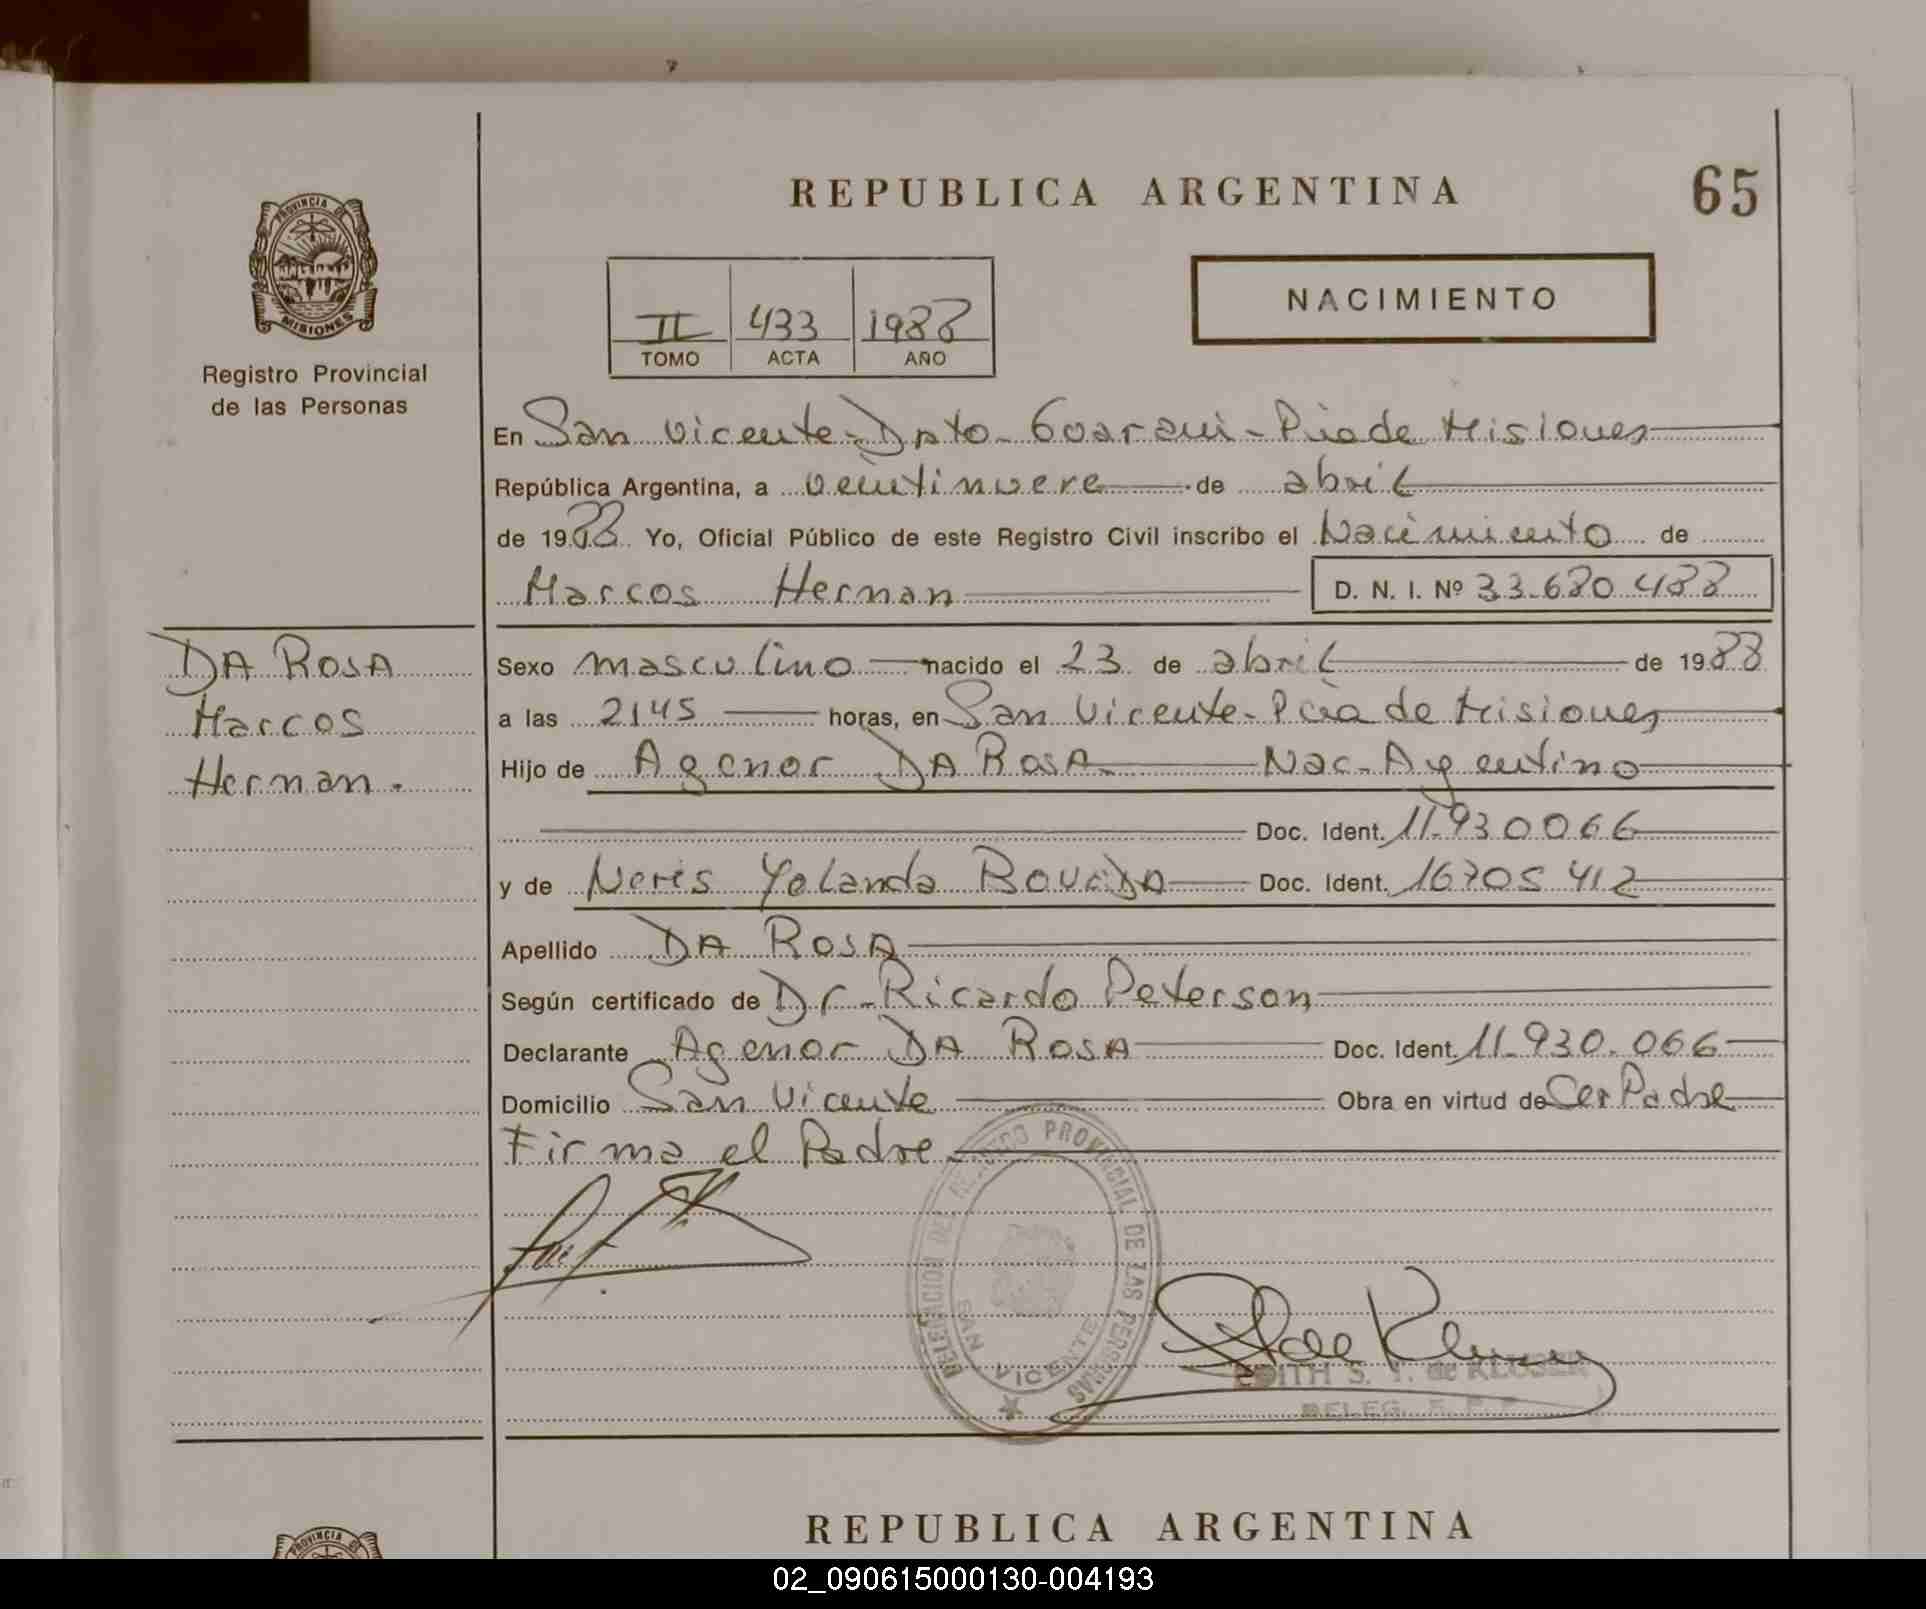 REPUBLICA ARGENTINA
65
PROVINCIA DE
MISIONES
Registro Provincial
de las Personas
II 433 1988
TOMO ACTA AÑO
NACIMIENTO
En San Vicente - Dpto. Guarani - Pcia de Misiones
República Argentina, a veintinueve de abril
de 1988 Yo, Oficial Público de este Registro Civil inscribo el Nacimiento de
Marcos Hernan D. N. I. Nº 33.680.488
DA ROSA
Marcos
Hernan.
Sexo masculino nacido el 23 de abril de 1988
a las 2145 horas, en San Vicente - Pcia de Misiones
Hijo de Agenor DA ROSA Nac. Argentino
Doc. Ident. 11.930066
y de Neris Yolanda BOVEDA Doc. Ident. 16705412
Apellido DA ROSA
Según certificado de Dr. Ricardo Peterson
Declarante Agenor DA ROSA Doc. Ident. 11.930.066
Domicilio San Vicente Obra en virtud de Ser Padre
Firma el Padre
DELEGACION DEL REGISTRO PROVINCIAL DE LAS PERSONAS
SAN VICENTE
EDITH S. T. de KLUSER
DELEG.
REPUBLICA ARGENTINA
PROVINCIA DE
02_090615000130-004193